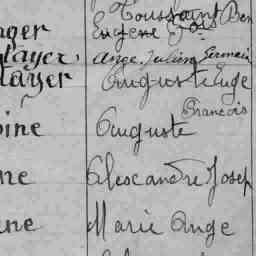 Toussaint Ben
ager Eugène
layer, Ange Julien Germain
layer Auguste Euge
François
oine Auguste
ne Alexandre Josep
ene Marie Ange